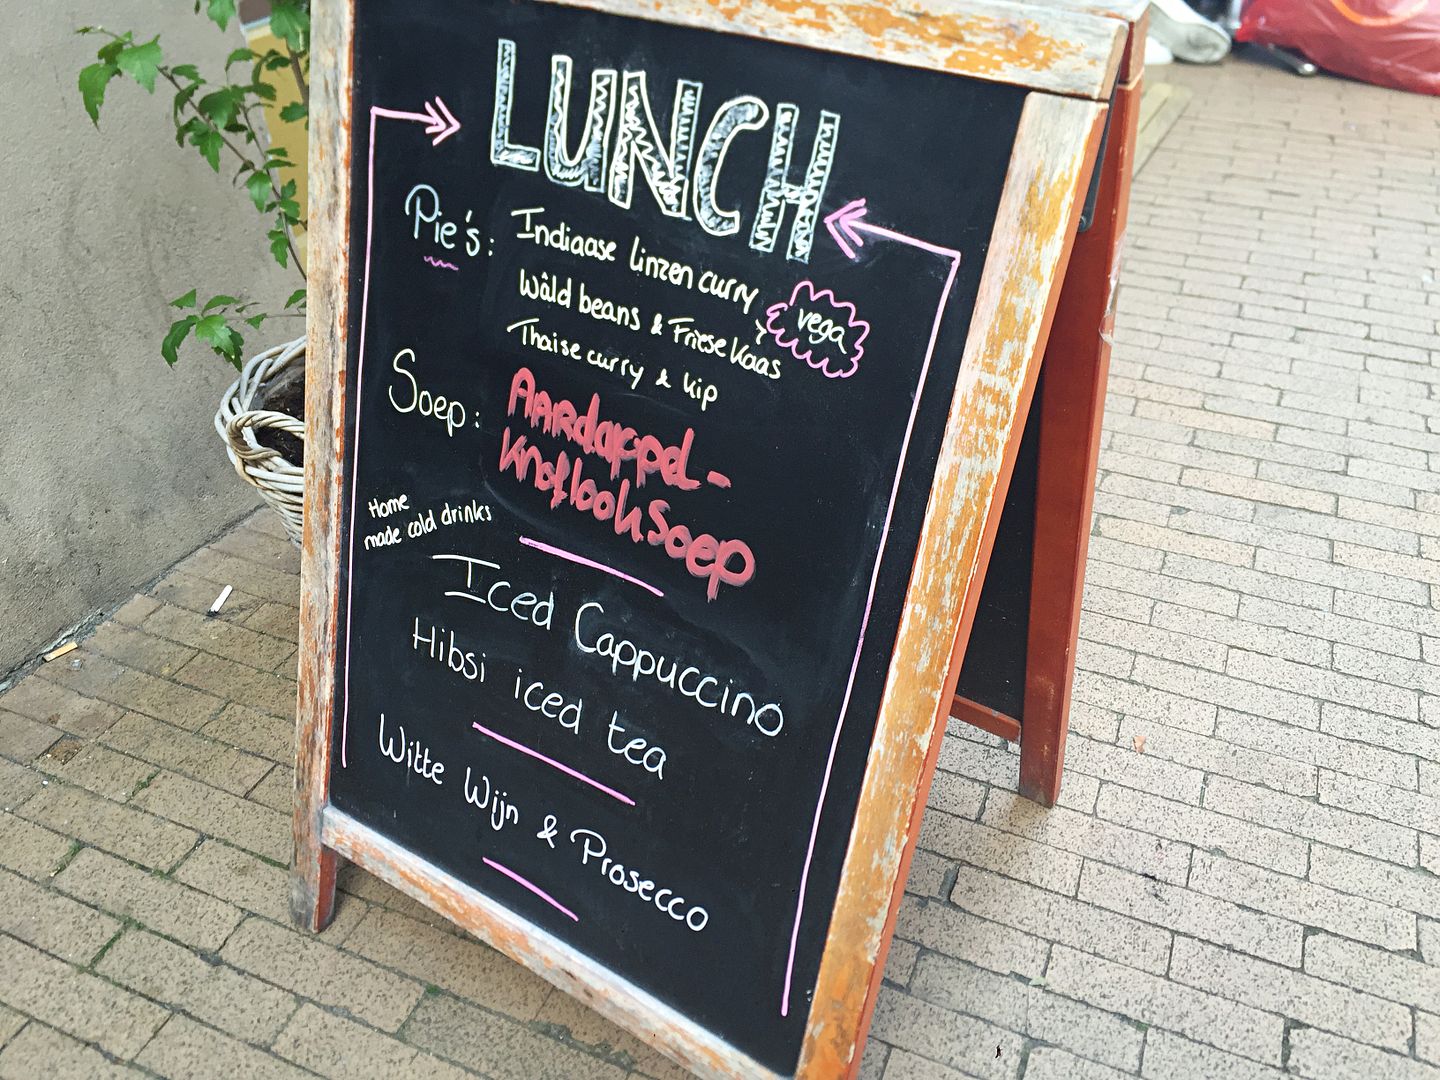 LUNCH
Pie's: Indiaase linzen curry
Wâld beans & Friese kaas
vega
Thaise curry & kip
Soep: Aardappel-
knoflooksoep
Home
made cold drinks
Iced Cappuccino
Hibsi iced tea
Witte Wijn & Prosecco